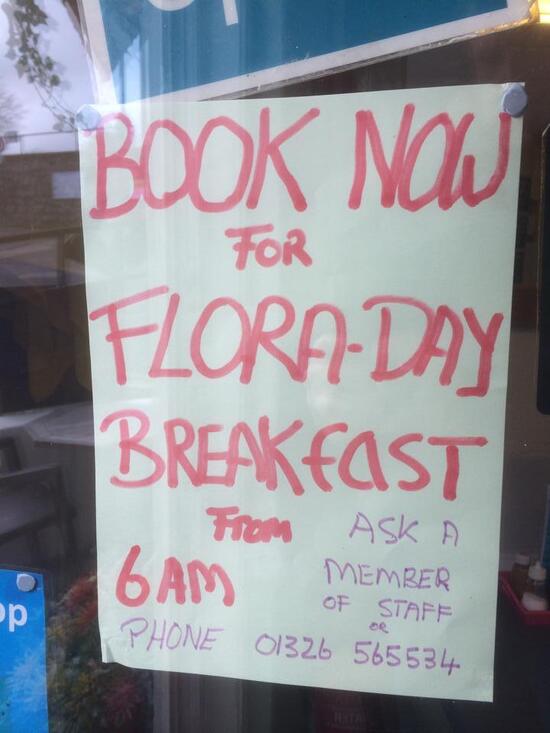 BOOK NOW
FOR
FLORA-DAY
BREAKfAST
From
6AM
ASK A
MEMBER
OF STAFF
or
PHONE 01326 565534
op